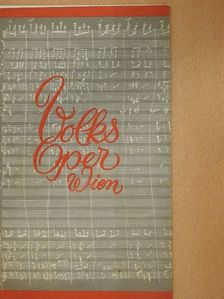 Volks
Oper
Wien